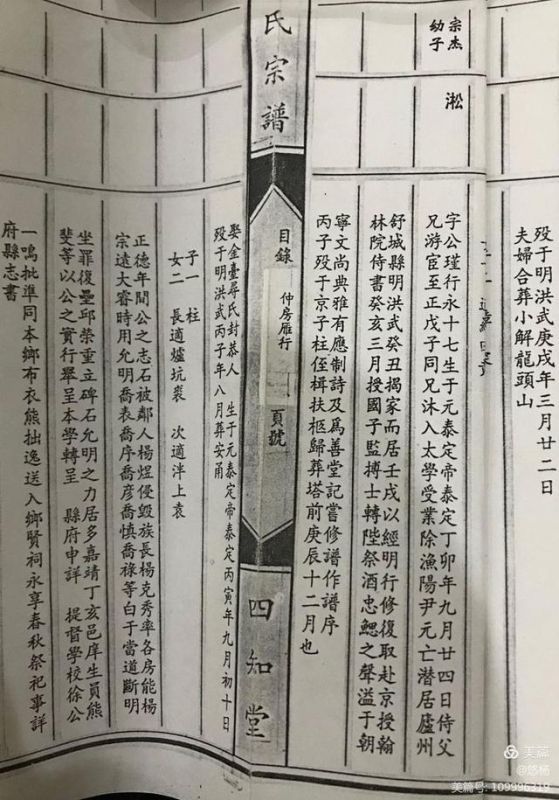 歿于明洪武庚戌年三月廿二日
夫婦合葬小解龍頭山
宗杰
幼子
淞
字公瑾行永十七生于元泰定帝泰定丁卯年九月廿四日侍父
兄游宦至正戊子同兄沐入太學受業除漁陽尹元亡潜居廬州
舒城縣明洪武癸丑揭家而居壬戌以經明行修復取赴京授翰
林院侍書癸亥三月授國子監搏士轉陞祭酒忠鯁之聲溢于朝
寧文尚典雅有應制詩及爲善堂記嘗修譜作譜序
丙子歿于京子柱侄楫扶柩歸葬塔前庚辰十二月也
氏宗譜
目錄
仲房雁行
頁號
四知堂
娶金臺尋氏封恭人 生于元泰定帝泰定丙寅年九月初十日
歿于明洪武丙子年八月葬安甬
子一 柱
女二 長適爐坑裴 次適泮上袁
正德年間公之志石被鄰人楊煜侵毀族長楊克秀率各房能楊
宗遠大睿時用允明喬表喬序喬彥喬慎喬祿等白于當道斷明
坐罪復壘邱榮重立碑石允明之力居多嘉靖丁亥邑庠生員熊
斐等以公之實行舉呈本學轉呈 縣府申詳 提督學校徐公
一鳴批準同本鄉布衣熊拙逸送入鄉賢祠永享春秋祭祀事詳
府縣志書
美篇
@悠杨
美篇号: